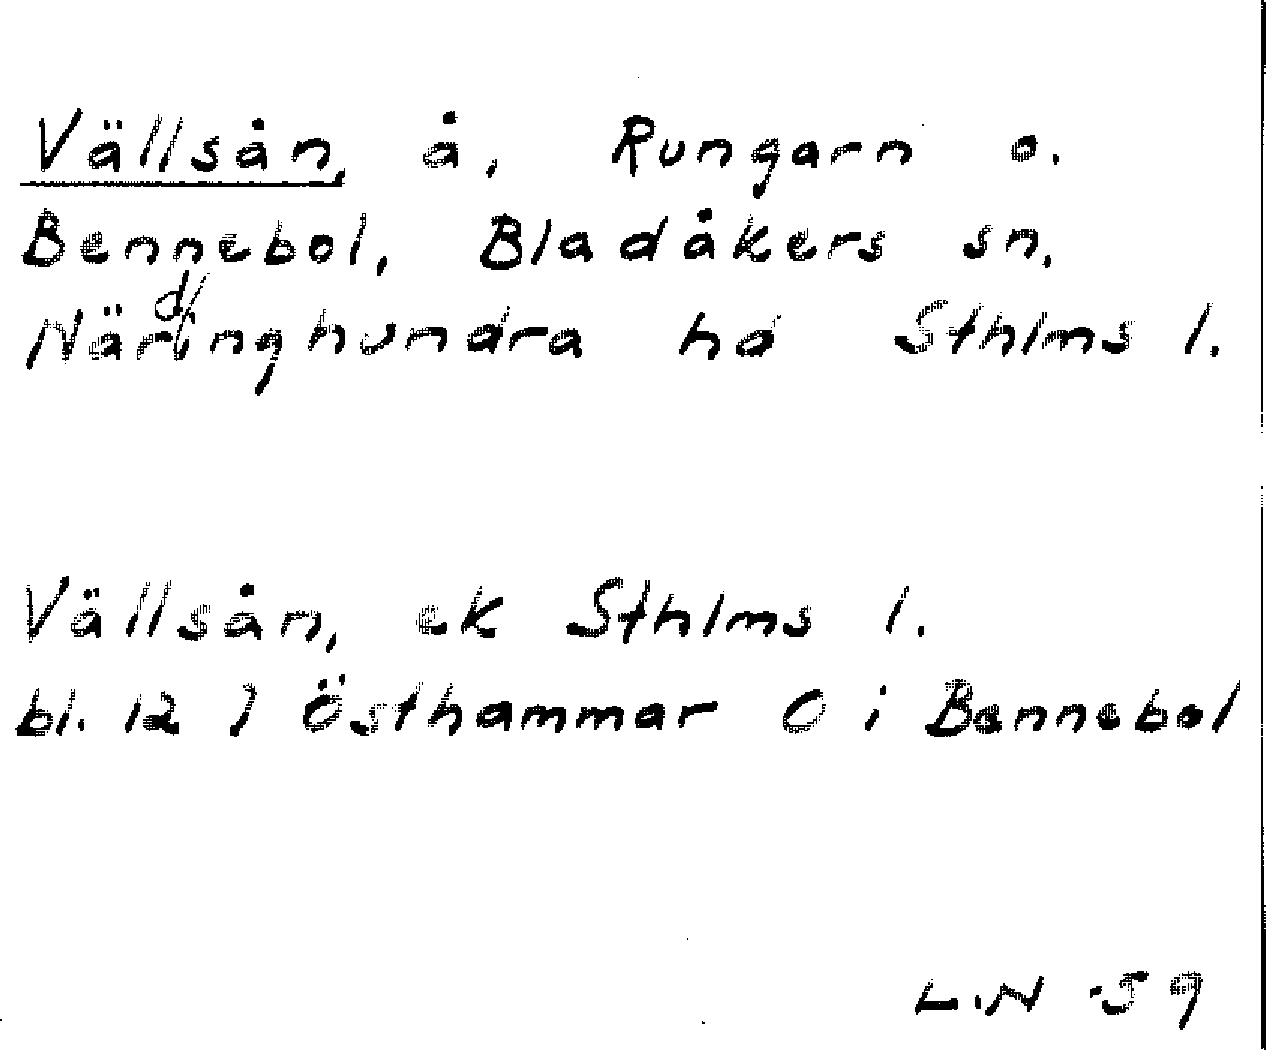 Vällsån, å, Rungarn o.
Bennebol, Bladåkers sn.
Närdinghundra hd Sthlms l.
Vällsån, ek Sthlms l.
bl. 12 1 Östhammar O i Bennebol
L.N 59